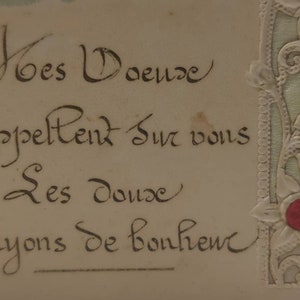 Mes Voeux
appellent sur vous
Les doux
ayons de bonheur